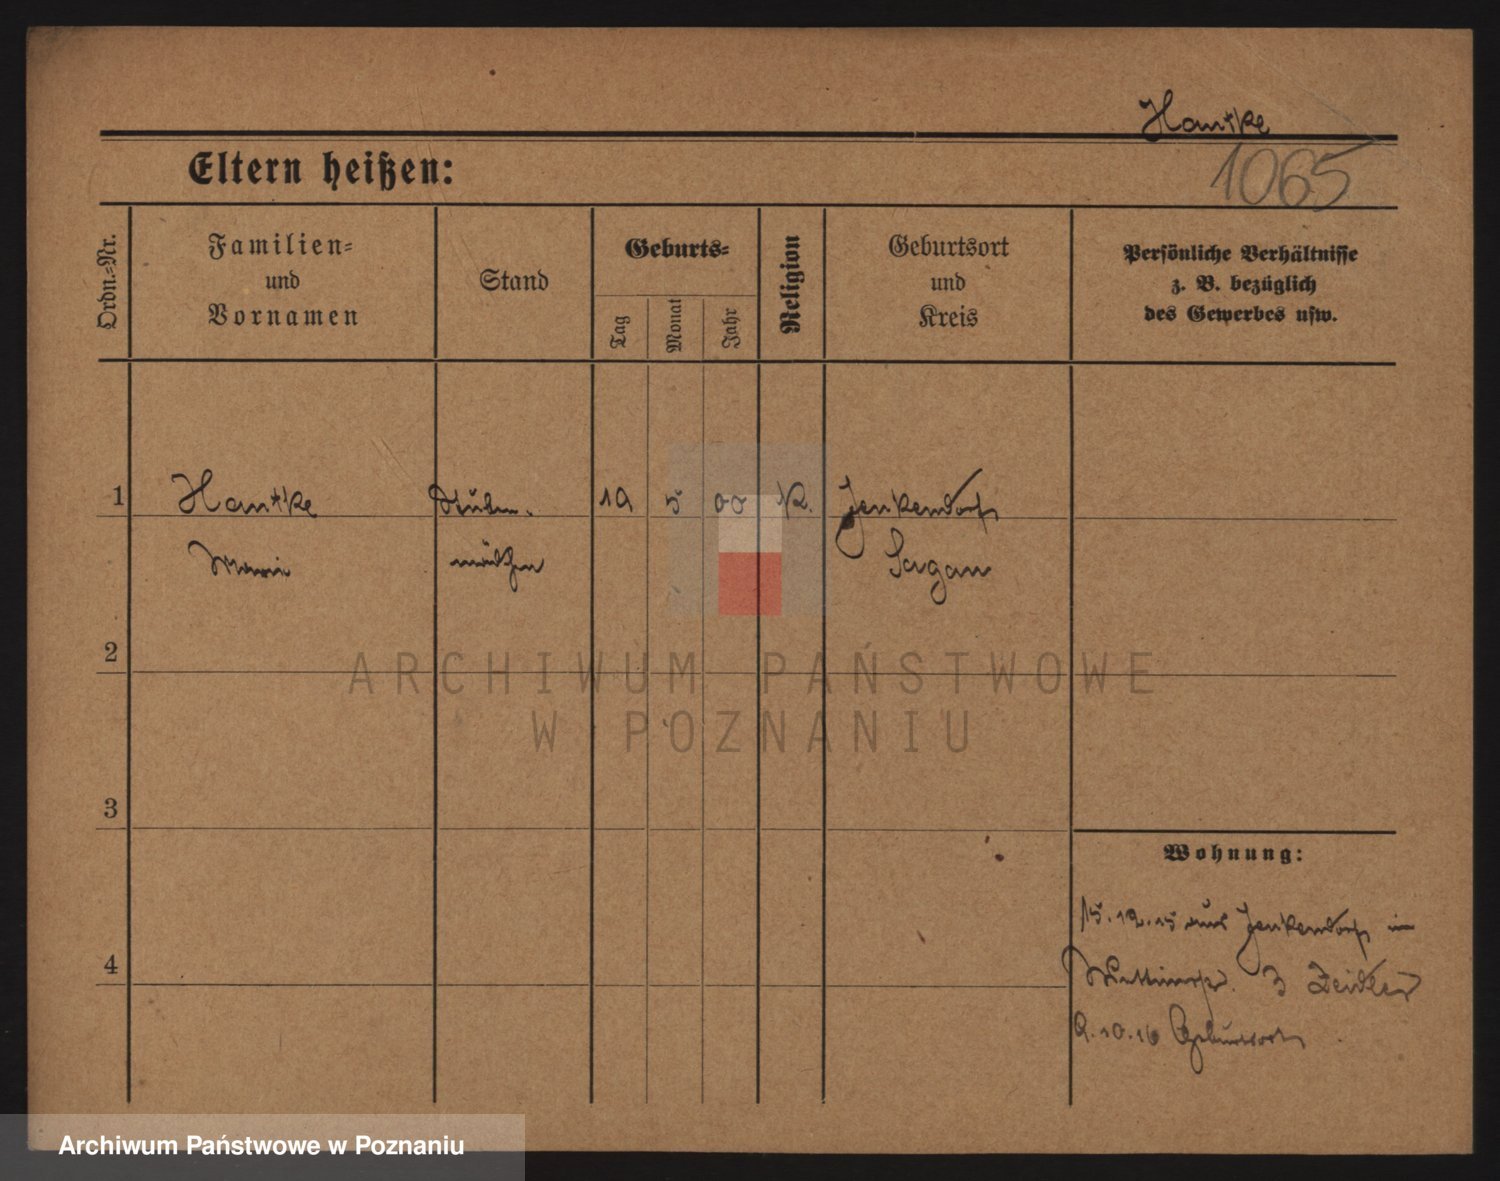 Hantke
Eltern heißen:
1065
Ordn.-Nr.
Familien-
und
Vornamen
Stand
Geburts-
Tag
Monat
Jahr
Religion
Geburtsort
und
Kreis
Persönliche Verhältnisse
z. B. bezüglich
des Gewerbes usw.
1 Hantke Stuben- 19 5 00 K. Jenkendorf
Marie mädchen Sagan
2
3
4
Wohnung:
15.12.15 aus Jenkendorf in
3 Zeidler
9.10.16 Geburtsort
ARCHIWUM PAŃSTWOWE
W POZNANIU
Archiwum Państwowe w Poznaniu